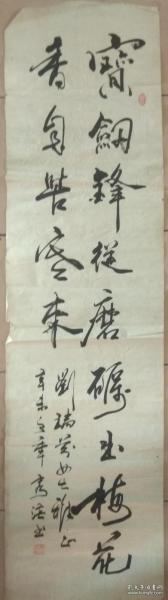 寳劍鋒從磨礪出梅花
香自苦寒来
劉瑞芝女士雅正
辛未之年